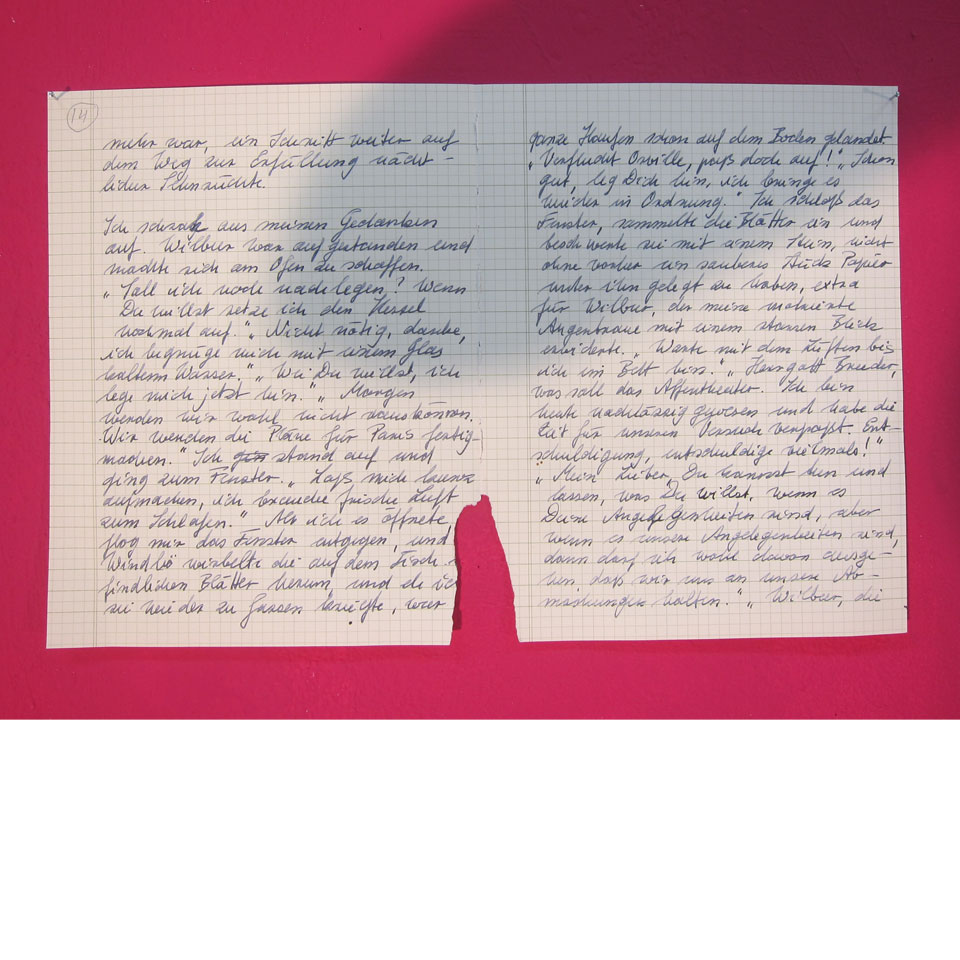 14
mehr war, ein Schritt weiter auf
dem Weg zur Erfüllung nächt-
licher Sehnsüchte.
Ich schrak aus meinen Gedanken
auf. Wilbur war aufgestanden und
machte sich am Ofen zu schaffen.
„Soll ich noch nachlegen? Wenn
Du willst setze ich den Kessel
nochmal auf.“ „Nicht nötig, danke,
ich begnüge mich mit einem Glas
kaltem Wasser.“ „Wie Du willst, ich
lege mich jetzt hin.“ „Morgen
werden wir wohl nicht rauskönnen.
Wir werden die Pläne für Paris fertig-
machen.“ Ich stand auf und
ging zum Fenster. „Lass mich kurz
aufmachen, ich brauche frische Luft
zum Schlafen.“ Als ich es öffnete,
flog mir das Fenster entgegen, und
Windbö wirbelte die auf dem Tisch
findlichen Blätter herum, und als ich
sie wieder zu fassen kriegte, war
ganze Haufen schon auf dem Boden gelandet.
„Verflucht Orville, paß doch auf!“ „Schon
gut, leg Dich hin, ich bringe es
wieder in Ordnung.“ Ich schloß das
Fenster, sammelte die Blätter ein und
beschwerte sie mit einem Stein, nicht
ohne vorher ein sauberes Stück Papier
unter ihn gelegt zu haben, extra
für Wilbur, der meine
Augenbraue mit einem starren Blick
erwiderte. „Warte mit dem Lüften bis
ich im Bett bin.“ „Herrgott Bruder,
was soll das Affentheater. Ich bin
heute nachlässig gewesen und habe die
Zeit für unseren Versuch verpaßt. Ent-
schuldigung, entschuldige vielmals!“
„Mein Lieber, Du kannst tun und
lassen, was Du willst, wenn es
Deine Angelegenheiten sind, aber
wenn es unsere Angelegenheiten sind,
dann darf ich wohl davon ausge-
hen daß wir uns an unsere Ab-
machungen halten.“ „Wilbur, die